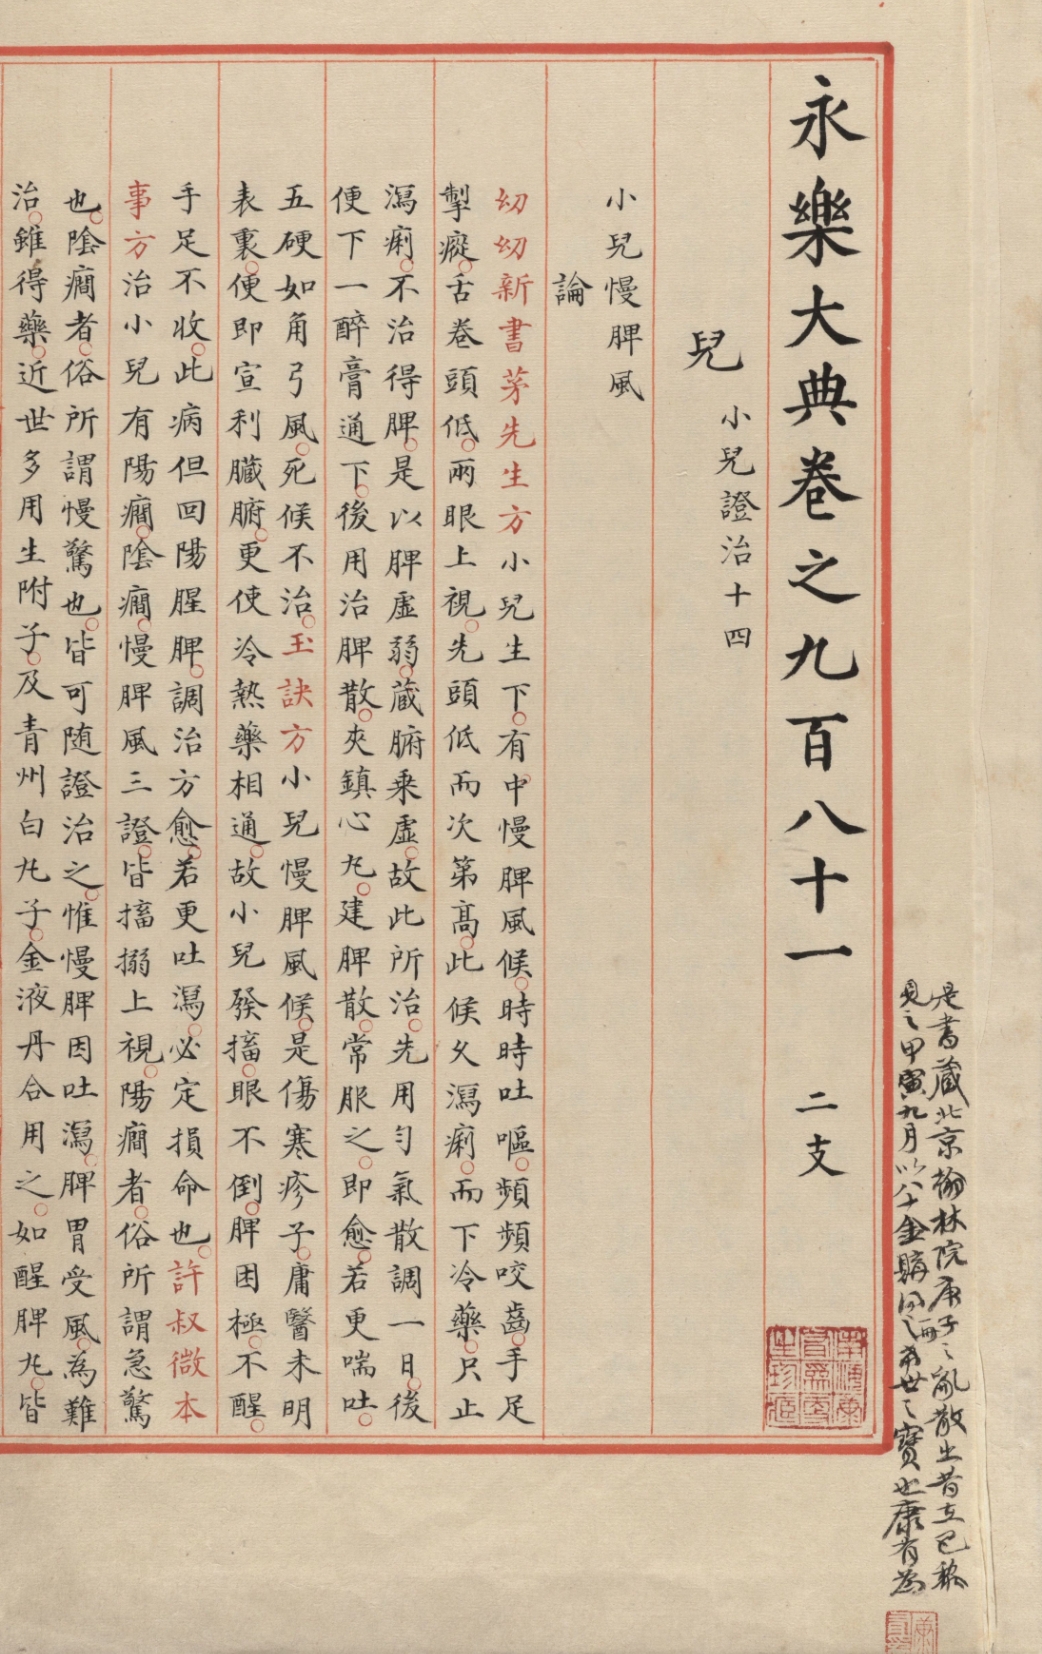 永樂大典卷之九百八十一 二支
兒 小兒證治十四
小兒慢脾風
論
幼幼新書茅先生方小兒生下有中慢脾風候時時吐嘔頻頻咬齒手足
掣瘲舌卷頭低兩眼上視先頭低而次第高此候久瀉痢而下冷藥只止
瀉痢不治得脾是以脾虛弱藏腑乘虛故此所治先用勻氣散調一日後
便下一醉膏通下後用治脾散夾鎮心丸建脾散常服之即愈若更喘吐
五硬如角弓風死候不治玉訣方小兒慢脾風候是傷寒疹子庸醫未明
表裏便即宣利臟腑更使冷熱藥相通故小兒發搐眼不倒脾困極不醒
手足不收此病但回陽腥脾調治方愈若更吐瀉必定損命也許叔微本
事方治小兒有陽癎陰癎慢脾風三證皆搐搦上視陽癎者俗所謂急驚
也陰癎者俗所謂慢驚也皆可随證治之惟慢脾因吐瀉脾胃受風為難
治錐得藥近世多用生附子及青州白丸子金液丹合用之如醒脾丸皆
是書藏北京翰林院庚子之亂散出昔在巴黎
見之甲寅九月以八十金購得一冊希世之寶也康有為